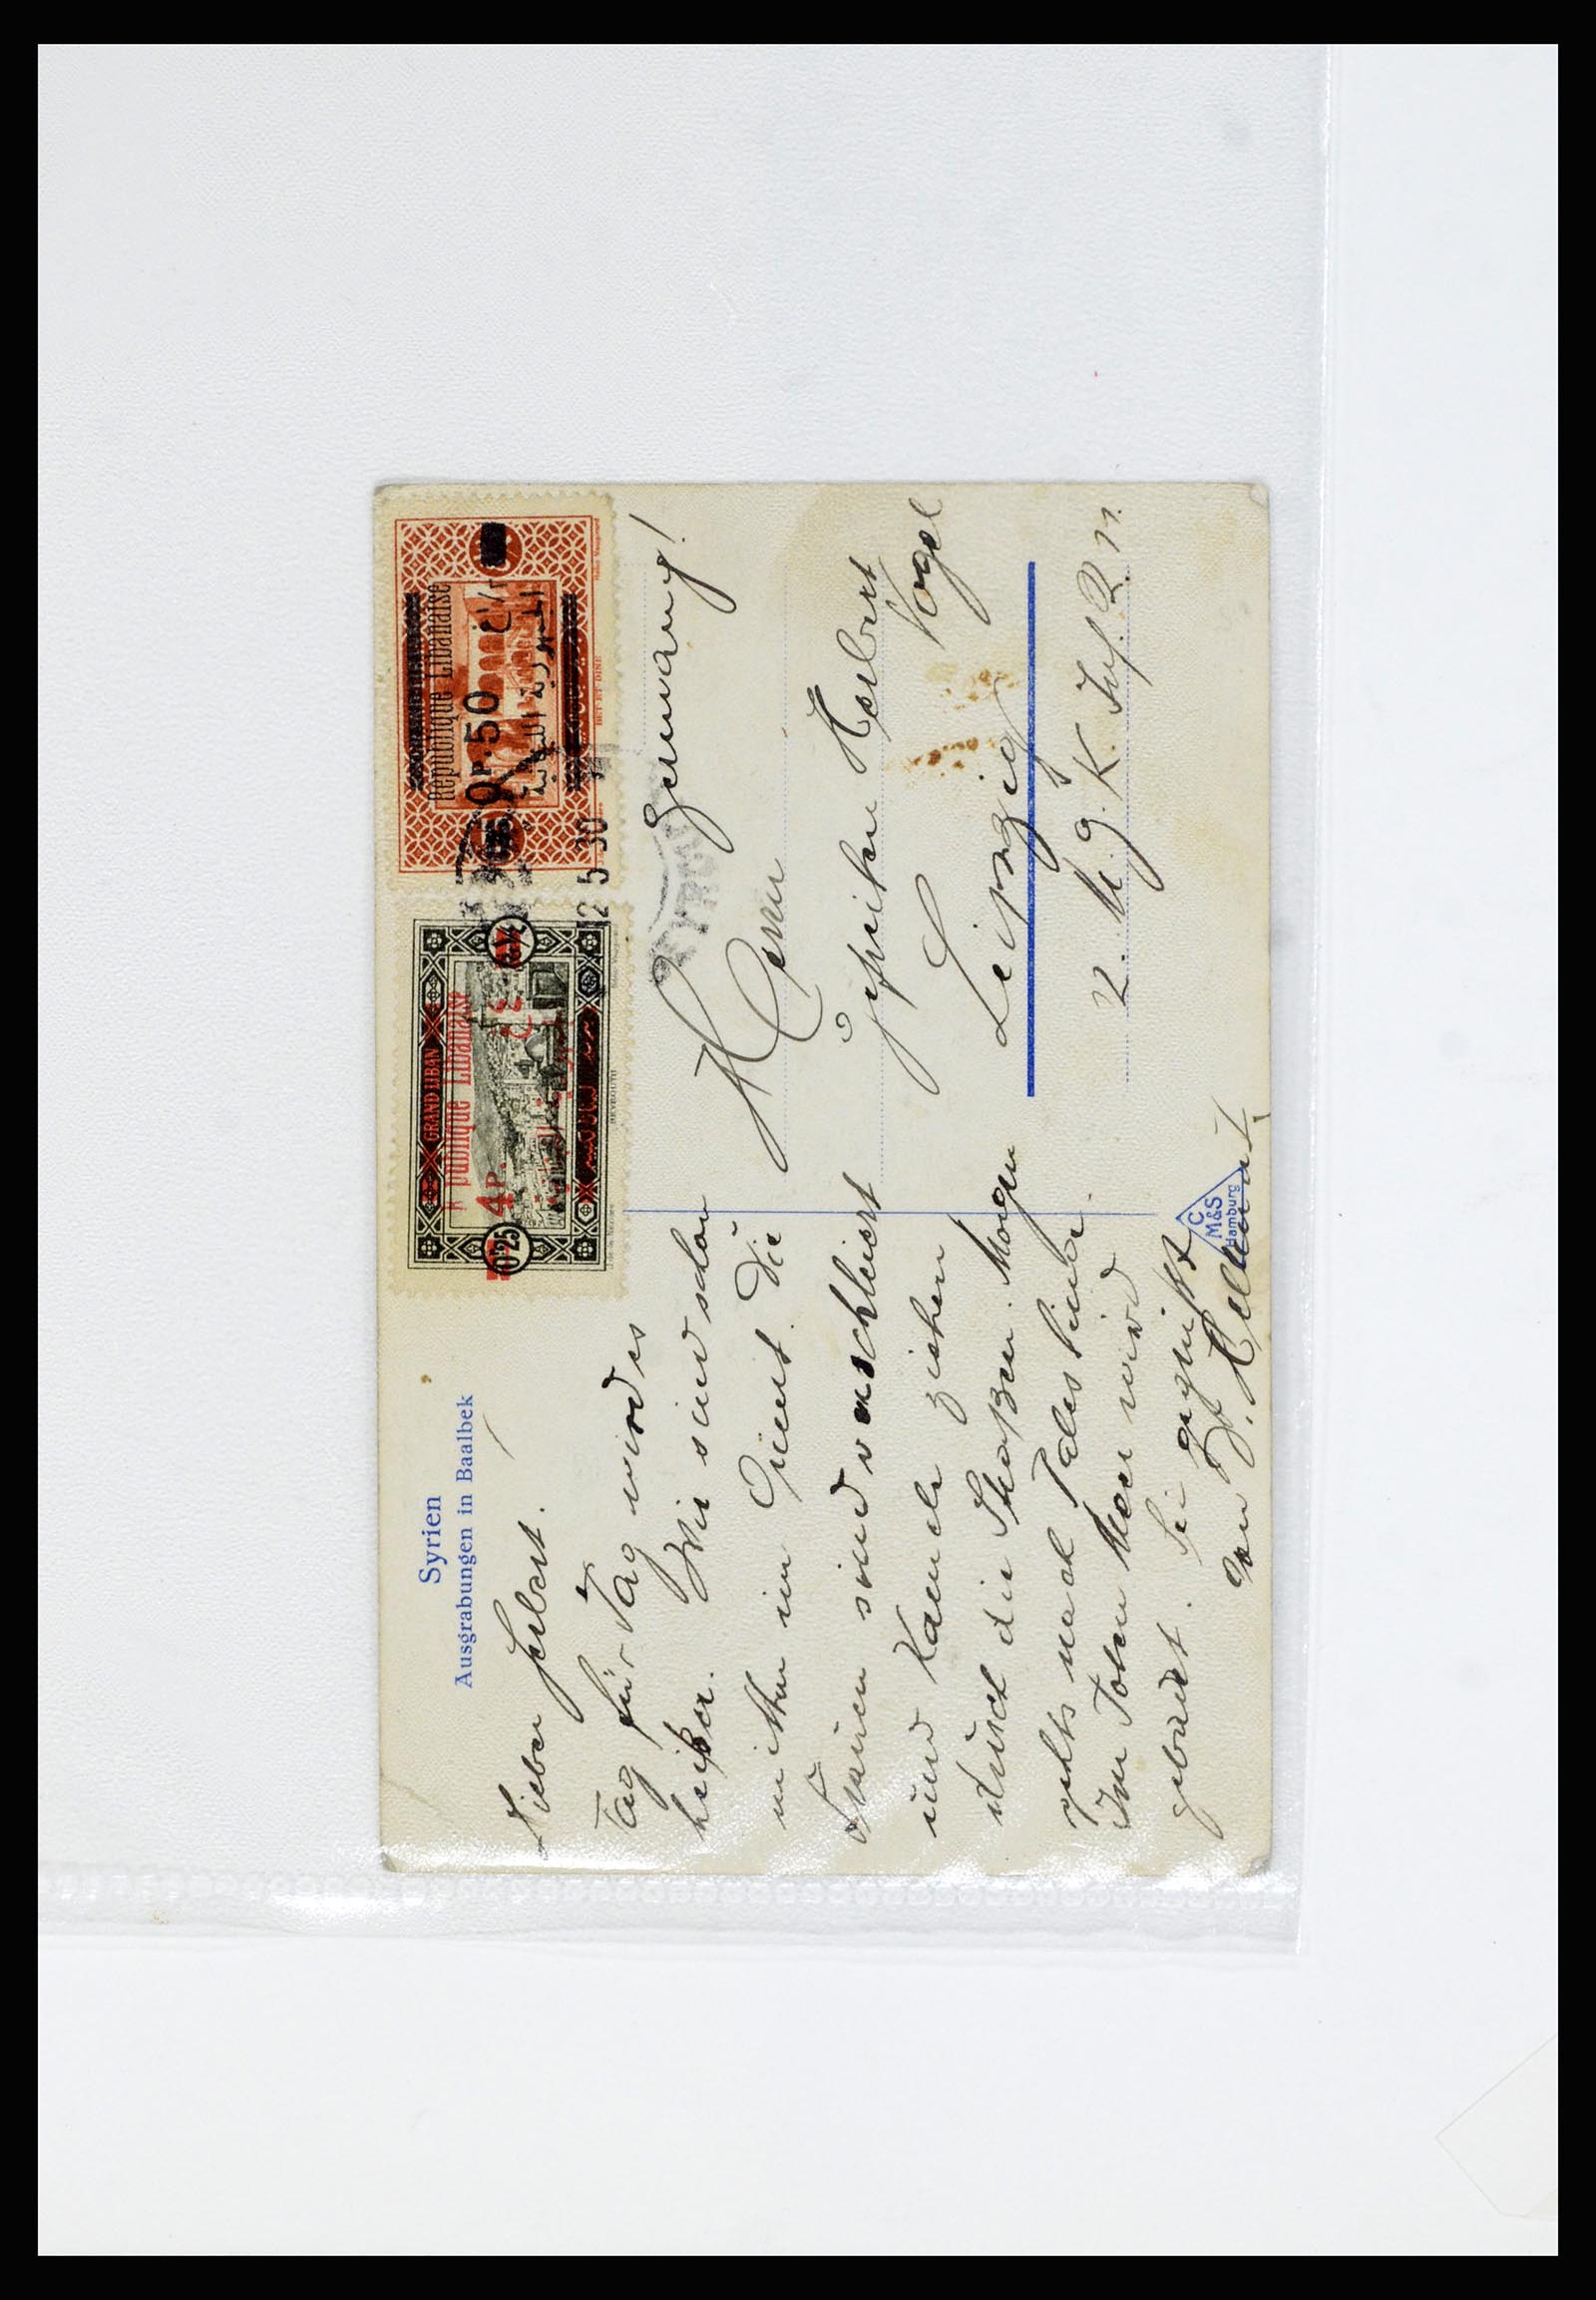 Syrien
Ausgrabungen in Baalbek
Lieber Herbert.
Tag für Tag wird es
heißer. Wir sind schon
mitten im Orient. Die
Frauen sind verschleiert
und Kamele ziehen
durch die Straßen. Morgen
gehts nach Palästina.
Im Toten Meer wird
gebadet. Sei gegrüßt
von
C
M&S
Hamburg
GRAND LIBAN
publique Libanaise
4P.
0P25
République Libanaise
0P.50
الجمهورية اللبنانية
12 5 30
Germany!
Herrn
Gefreiten Herbert
Vogel
Leipzig